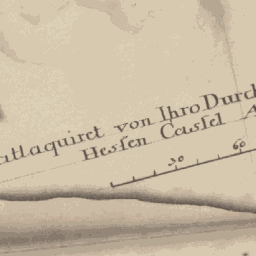 atlaquiret von Ihro Durch
Hessen Cassel A
30 60